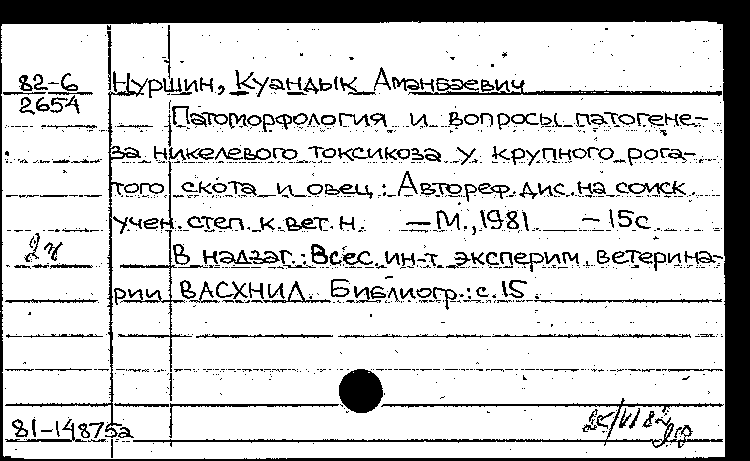 82-6
2654
Нуршин, Куандык Аманбаевич
Патоморфология и вопросы патогене-
за никелевого токсикоза у крупного рога-
того скота и овец: Автореф. дис. на соиск.
учен. степ. к. вет. н. — М., 1981 — 15с
2ч
В надзаг.: Всес. ин-т эксперим. ветерина-
рии ВАСХНИЛ. Библиогр.: с. 15.
81-14875а